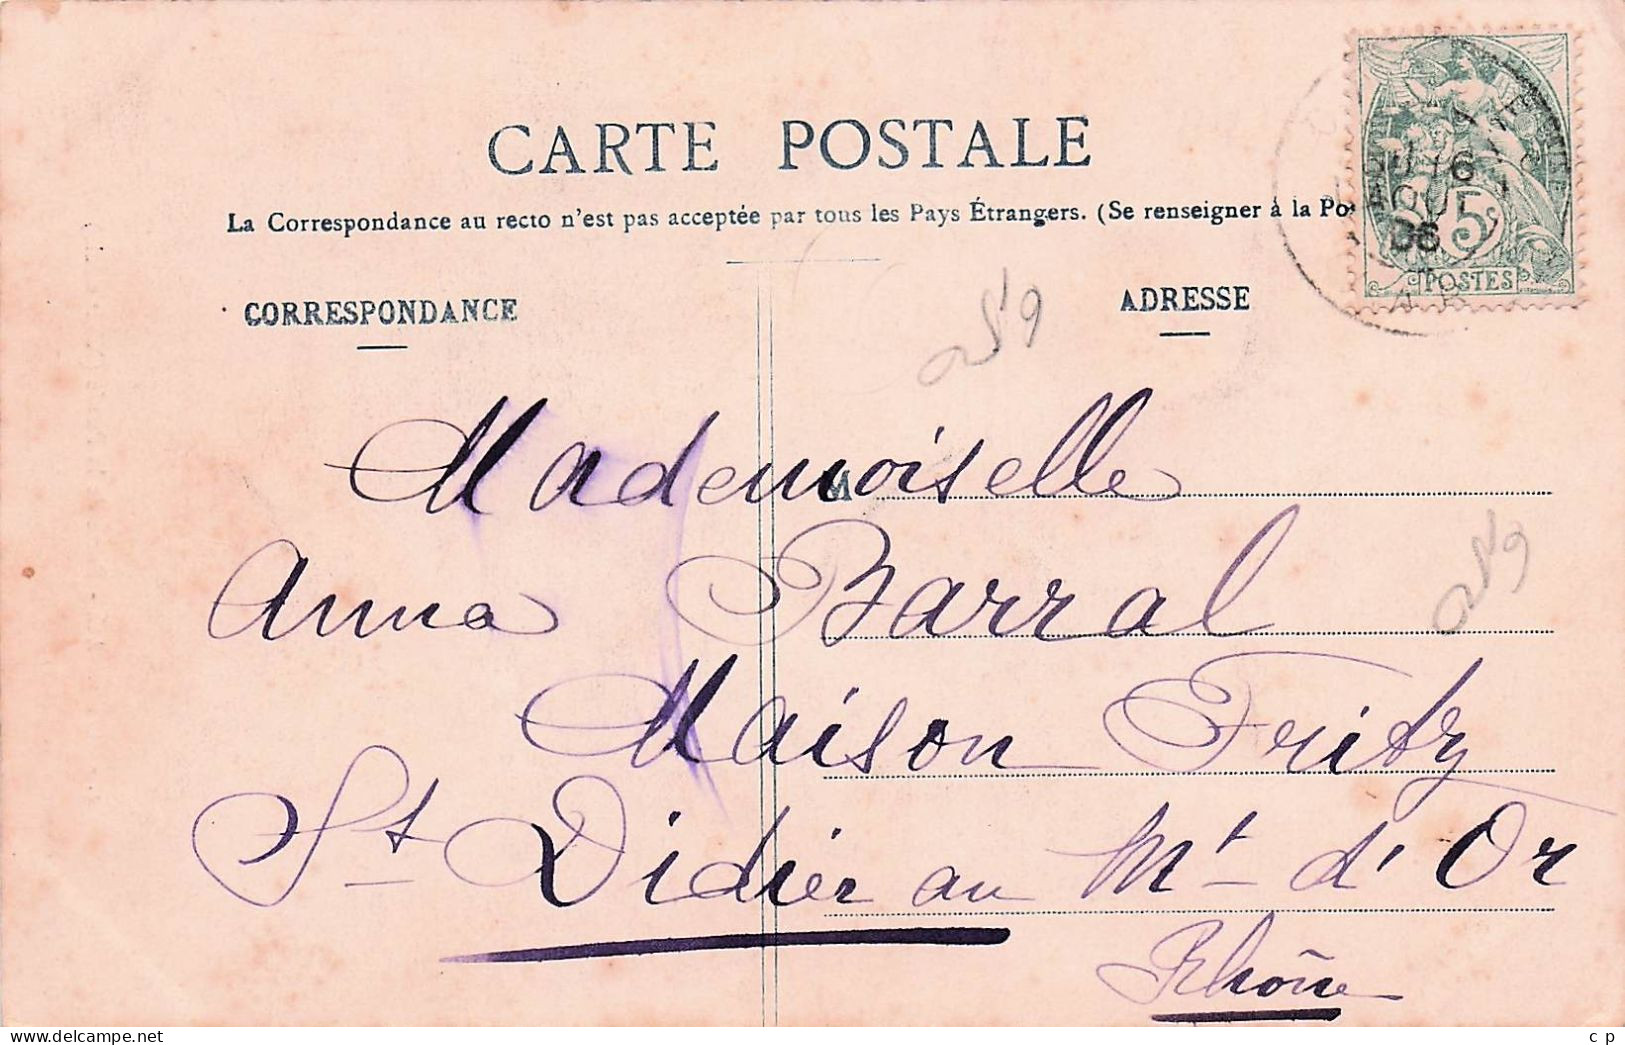 CARTE POSTALE
La Correspondance au recto n'est pas acceptée par tous les Pays Étrangers. (Se renseigner à la Po
CORRESPONDANCE
ADRESSE
5c
POSTES
16
AOUT
06
Mademoiselle
M
Anna Barral
Maison Fritz
St Didier au Mt d'Or
Rhône
c p